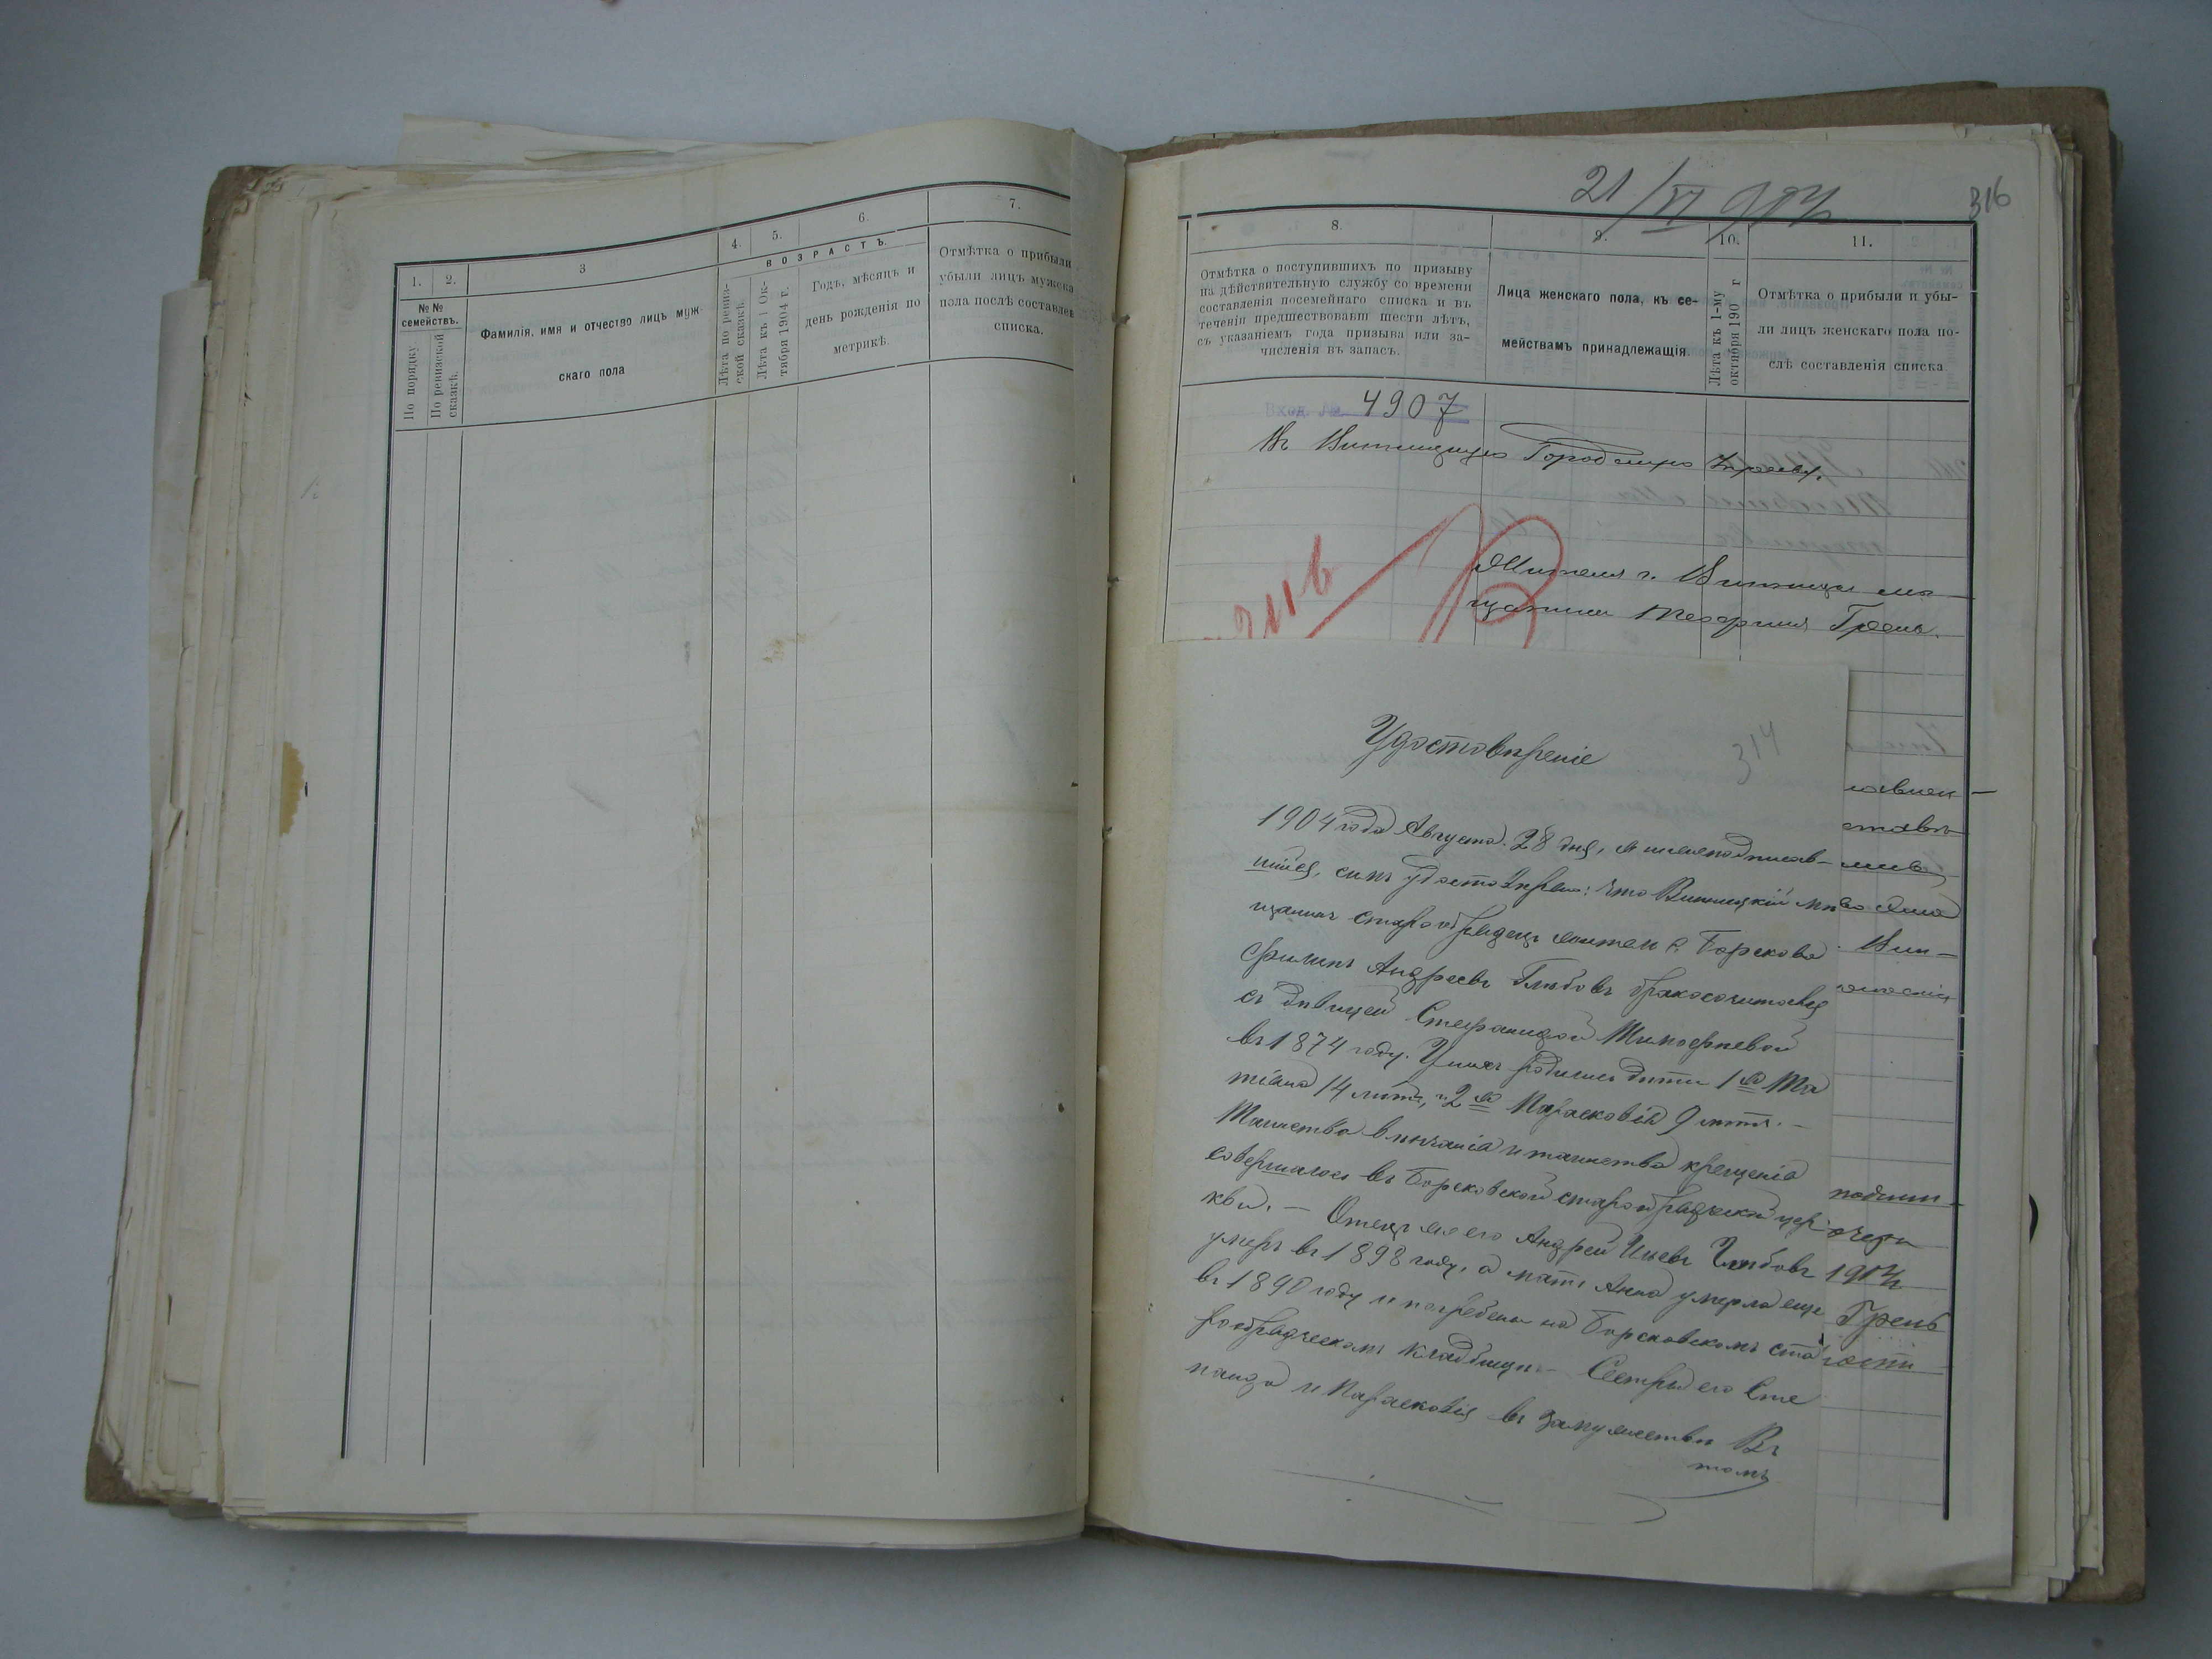 1.
2.
3
4.
5.
6.
7.
№ №
семействъ.
По порядку.
По ревизской
сказкѣ.
Фамилія, имя и отчество лицъ муж-
скаго пола
ВОЗРАСТЪ.
Лѣта по ревиз-
ской сказкѣ.
Лѣта къ 1 Ок-
тября 1904 г.
Годъ, мѣсяцъ и
день рожденія по
метрикѣ.
Отмѣтка о прибыли
убыли лицъ мужска
пола послѣ составлен
списка.
21/VI 904
316
8.
9.
10.
11.
Отмѣтка о поступившихъ по призыву
на дѣйствительную службу со времени
составленія посемейнаго списка и въ
теченіи предшествовавш шести лѣтъ,
съ указаніемъ года призыва или за-
численія въ запасъ.
Лица женскаго пола, къ се-
мействамъ принадлежащія.
Лѣта къ 1-му
октября 190 г
Отмѣтка о прибыли и убы-
ли лицъ женскаго пола по-
слѣ составленія списка
Вход. № 4907
Въ Винницкую Городскую Управу.
Жителя г. Винницы мѣ-
щанина Грень.
Удостовѣреніе
314
1904 года Августа 28 дня, я нижеподписав-
шійся, симъ удостовѣряю: что Винницкій мѣ
щанинъ старообрядецъ житель с. Борскова
Филипъ Андреевъ Глѣбовъ бракосочитався
съ дѣвицей Степанидой Тимофѣевой
въ 1874 году. У нихъ родились дѣти 1я Та
тіана 14 лѣтъ, и 2я Парасковія 9 лѣтъ. —
Таинство вѣнчанія и таинство крещенія
совершалось въ Борсковской старообрядческой цер
кви. — Отецъ же его Андрей Глѣбовъ
умеръ въ 1898 году, а мать Анна умерла еще
въ 1890 году и погребены на Борсковскомъ ста
рообрядческомъ кладбищѣ — Сестры его Сте
панида и Парасковія въ замужествѣ Въ
томъ
1904
Грень